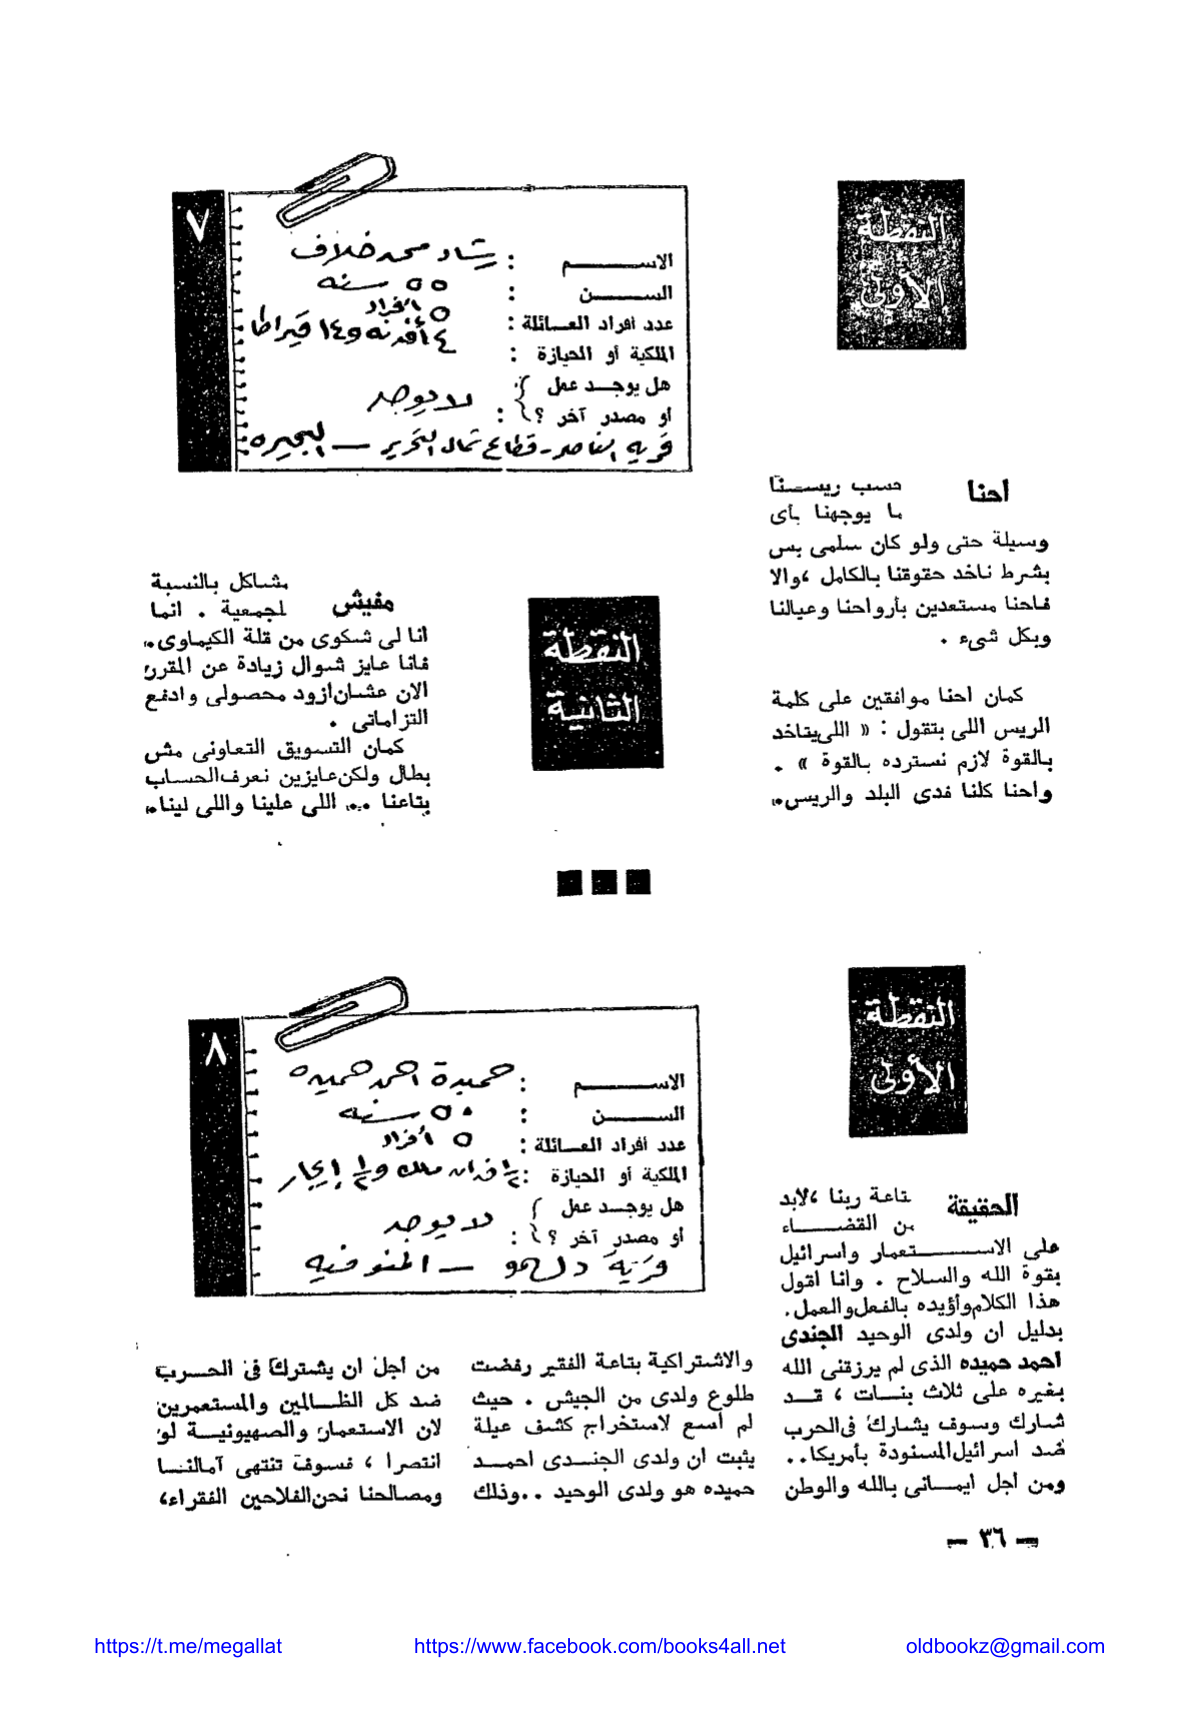 ٧
الاســـــم : رشاد محمد خلاف
الســـــن : ٥٥ سنه
عدد أفراد العــائلة : ٥ أفراد
الملكية أو الحيازة : ٤ أفدنه و١٤ قيراطا
هل يوجــد عمل
أو مصدر آخر ؟ : لا يوجد
قريه الناصر - قطاع شمال التحرير - البحيره
النقطة
الأولى
احنا حسب ريســنا
ما يوجهنا بأى
وسيلة حتى ولو كان سلمى بس
بشرط ناخد حقوقنا بالكامل ، والا
فاحنا مستعدين بأرواحنا وعيالنا
وبكل شىء .
كمان احنا موافقين على كلمة
الريس اللى بتقول : « اللى يتاخد
بالقوة لازم نسترده بالقوة » .
واحنا كلنا فدى البلد والريس..
النقطة
الثانية
مفيش مشاكل بالنسبة
لجمعية . انما
انا لى شكوى من قلة الكيماوى..
فانا عايز شوال زيادة عن المقرر
الان عشان ازود محصولى وادفع
التزاماتى .
كمان التسويق التعاونى مش
بطال ولكن عايزين نعرف الحساب
بتاعنا ... اللى علينا واللى لينا..
٨
الاســـــم : حميدة احمد حميده
الســـــن : ٥٠ سنه
عدد أفراد العــائلة : ٥ أفراد
الملكية أو الحيازة : ١/٢ فدان ملك و١/٢ إيجار
هل يوجــد عمل
أو مصدر آخر ؟ : لا يوجد
قرية دلهمو - المنوفيه
النقطة
الأولى
الحقيقة بتاعة ربنا ، لابد
من القضــــاء
على الاســـــتعمار واسرائيل
بقوة الله والسلاح . وانا اقول
هذا الكلام وأؤيده بالفعل والعمل .
بدليل ان ولدى الوحيد الجندى
احمد حميده الذى لم يرزقنى الله
بغيره على ثلاث بنــات ، قــد
شارك وسوف يشارك فى الحرب
ضد اسرائيل المسنودة بأمريكا..
ومن أجل ايمــانى بالله والوطن
والاشتراكية بتاعة الفقير رفضت
طلوع ولدى من الجيش . حيث
لم أسع لاستخراج كشف عيلة
يثبت ان ولدى الجنــدى احمــد
حميده هو ولدى الوحيد ..وذلك
من أجل ان يشترك فى الحــرب
ضد كل الظــالمين والمستعمرين
لان الاستعمار والصهيونيــة لو
انتصرا ، فسوف تنتهى آمالنــا
ومصالحنا نحن الفلاحين الفقراء،
— ٣٦ —
https://t.me/megallat https://www.facebook.com/books4all.net oldbookz@gmail.com